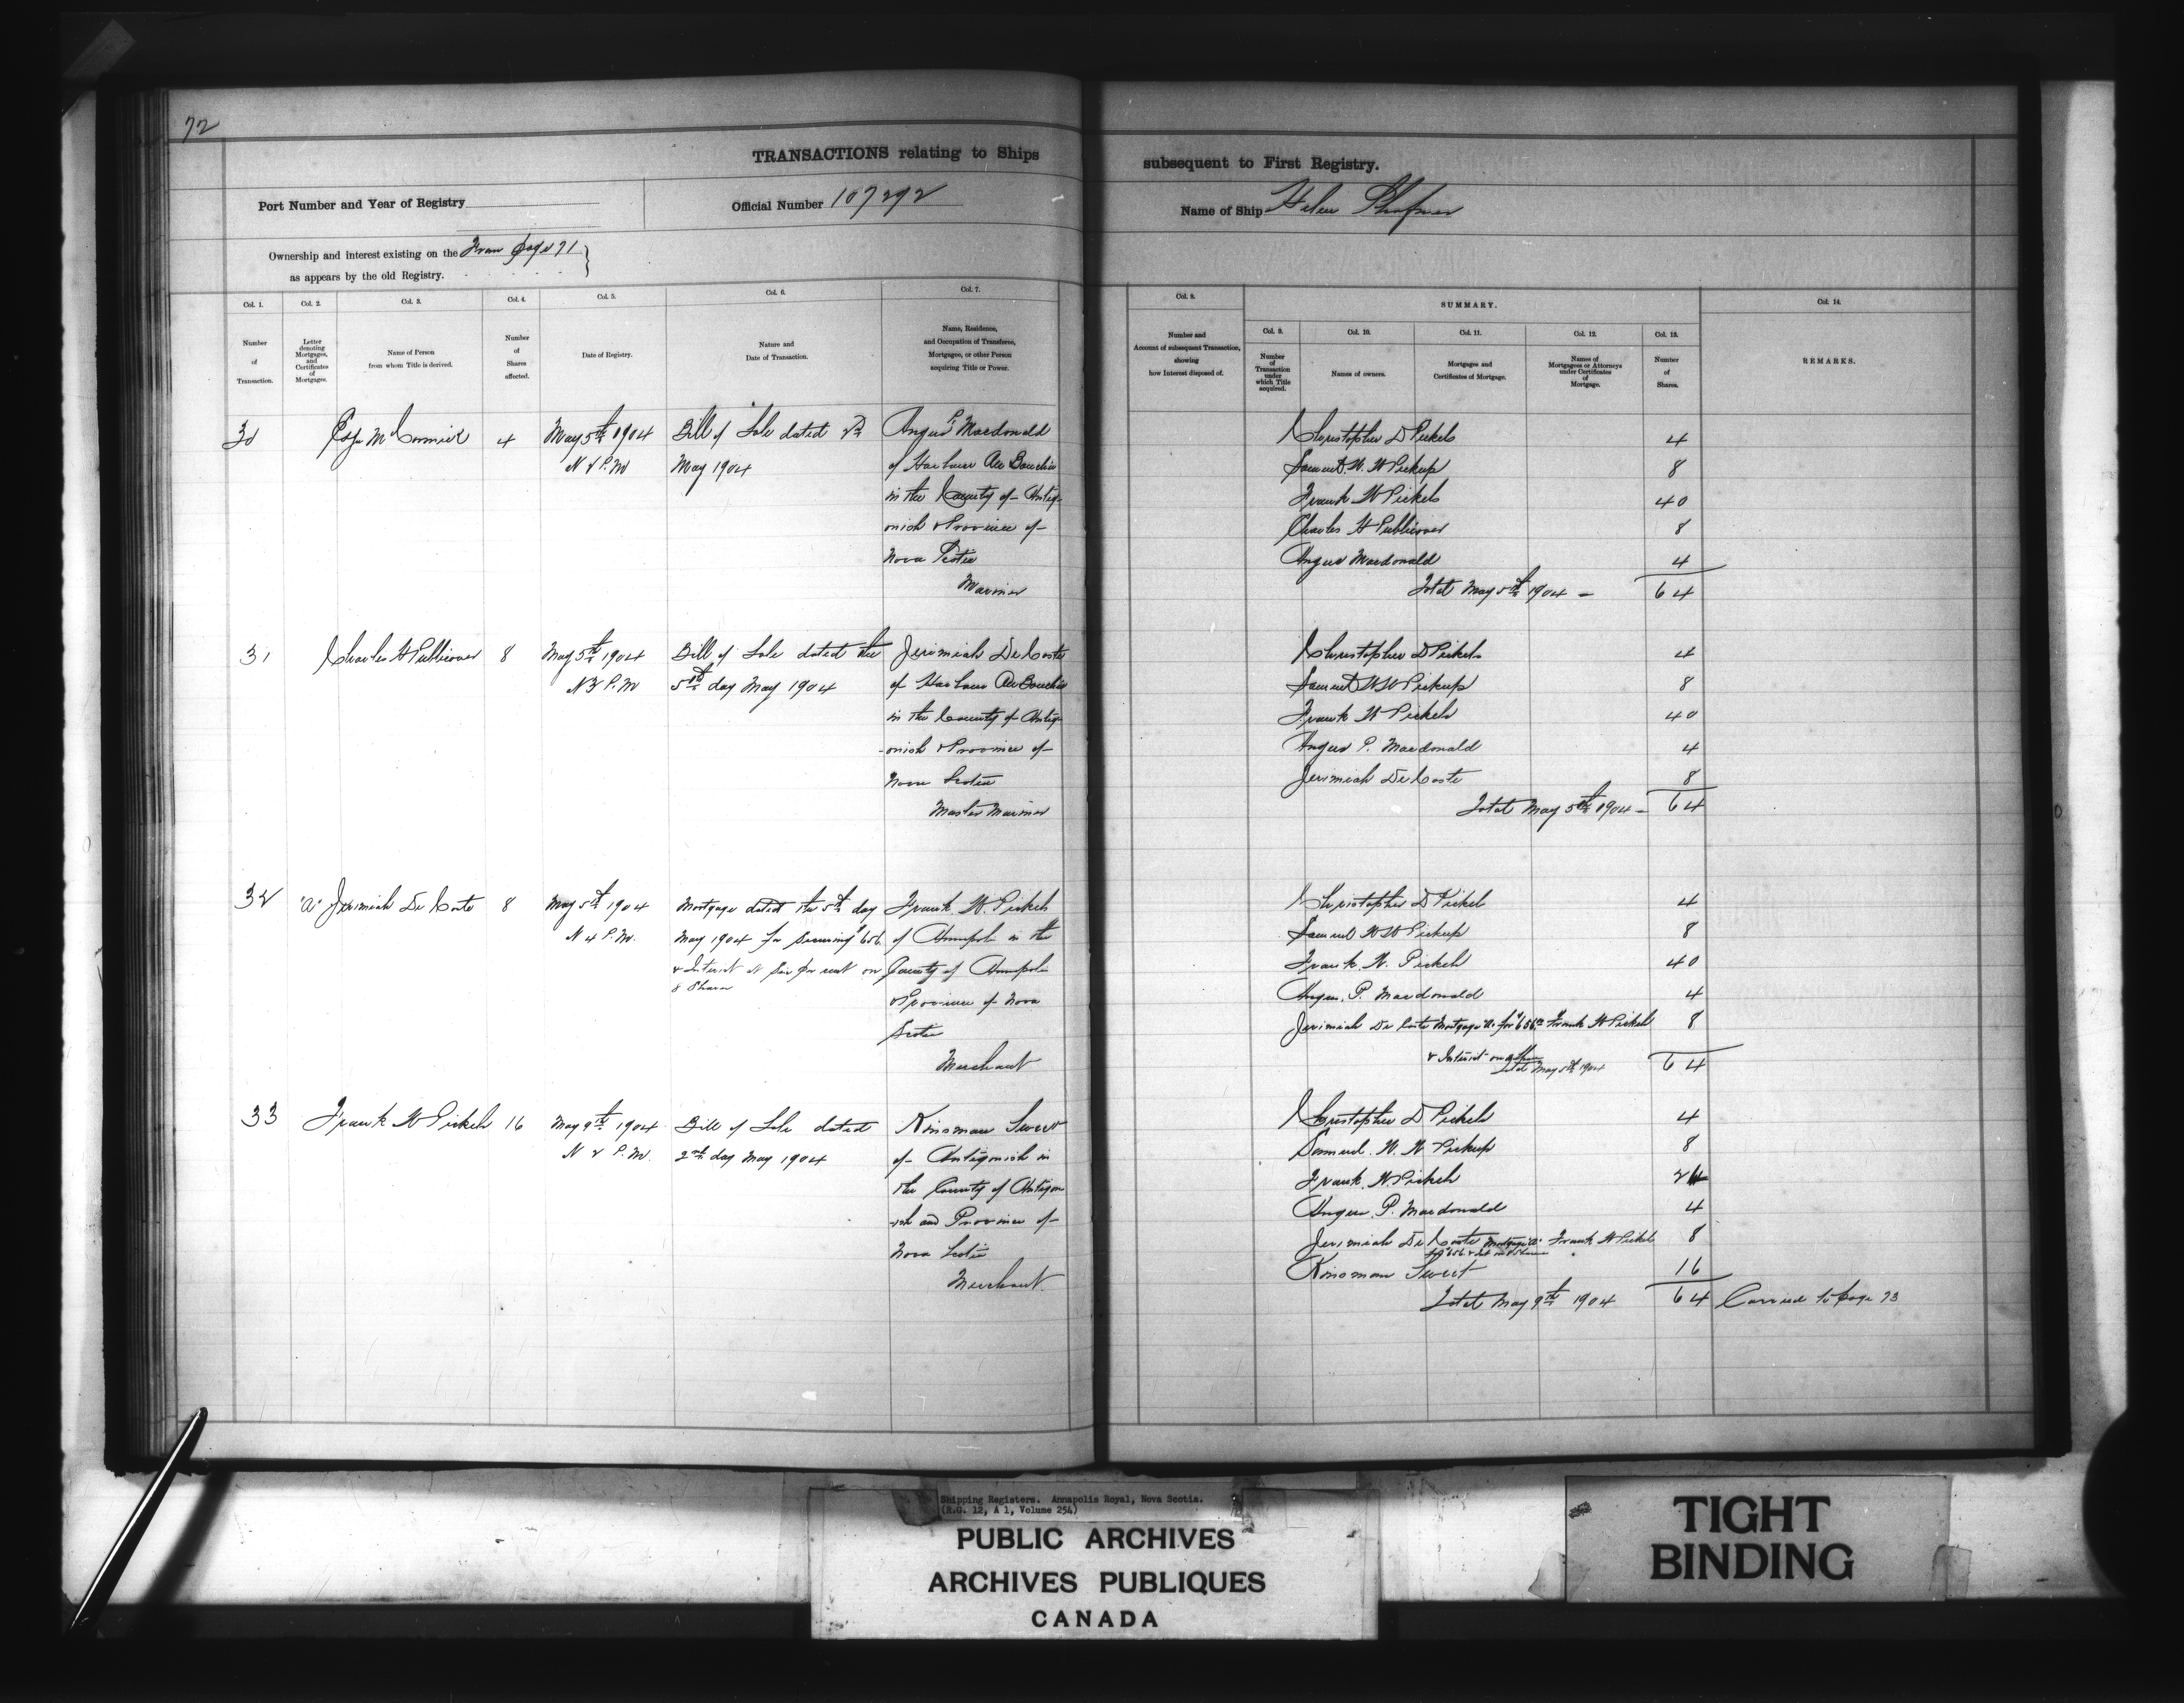 72
TRANSACTIONS relating to Ships subsequent to First Registry.
Port Number and Year of Registry
Official Number 107292
Name of Ship Helen Shafner
Ownership and interest existing on the From page 71
as appears by the old Registry.
Col. 1. Number of Transaction.
Col. 2. Letter denoting Mortgages, and Certificates of Mortgages.
Col. 3. Name of Person from whom Title is derived.
Col. 4. Number of Shares affected.
Col. 5. Date of Registry.
Col. 6. Nature and Date of Transaction.
Col. 7. Name, Residence, and Occupation of Transferee, Mortgagee, or other Person acquiring Title or Power.
Col. 8. Number and Account of subsequent Transaction, showing how Interest disposed of.
SUMMARY.
Col. 9. Number of Transaction under which Title acquired.
Col. 10. Names of owners.
Col. 11. Mortgages and Certificates of Mortgage.
Col. 12. Names of Mortgagees or Attorneys under Certificates of Mortgage.
Col. 13. Number of Shares.
Col. 14. REMARKS.
30 McCormick 4 May 5th 1904 Bill of Sale dated Angus P. Macdonald
P.M May 1904 of Harbour Au Bouchie
in the County of Antig-
onish & Province of
Nova Scotia
Mariner
Christopher D Pickels 4
Samuel W. W Pickup 8
Frank W Pickels 40
Charles H Publicover 8
Angus Macdonald 4
Total May 5th 1904 - 64
31 Charles H Publicover 8 May 5th 1904 Bill of Sale dated the Jerimiah De Coste
N 3 P.M 5th day May 1904 of Harbour Au Bouchie
in the County of Antig-
onish & Province of
Nova Scotia
Master Mariner
Christopher D Pickels 4
Samuel W W Pickup 8
Frank W Pickels 40
Angus P. Macdonald 4
Jerimiah De Coste 8
Total May 5th 1904 - 64
32 "A" Jerimiah De Coste 8 May 5th 1904 Mortgage dated the 5th day Frank W. Pickels
N 4 P.M. May 1904 for securing $656 of Annapolis in the
& Interest at Six per cent on County of Annapolis
8 Shares & Province of Nova
Scotia
Merchant
Christopher D Pickels 4
Samuel W W Pickup 8
Frank W. Pickels 40
Angus P. Macdonald 4
Jerimiah De Coste Mortgage "A" for $656 Frank W Pickels 8
& Interest on 8 Shares
Total May 5th 1904 64
33 Frank W Pickels 16 May 9th 1904 Bill of Sale dated Kinsman Sweet
N 2 P.M. 2nd day May 1904 of Antigonish in
the County of Antigon
-ish and Province of
Nova Scotia
Merchant
Christopher D Pickels 4
Samuel. W. W Pickup 8
Frank W. Pickels 24
Angus P. Macdonald 4
Jerimiah De Coste Mortgage "A" Frank W Pickels 8
Kinsman Sweet 16
Total May 9th 1904 64 Carried to page 73
Shipping Registers. Annapolis Royal, Nova Scotia.
(R.G. 12, A 1, Volume 254)
PUBLIC ARCHIVES
ARCHIVES PUBLIQUES
CANADA
TIGHT
BINDING